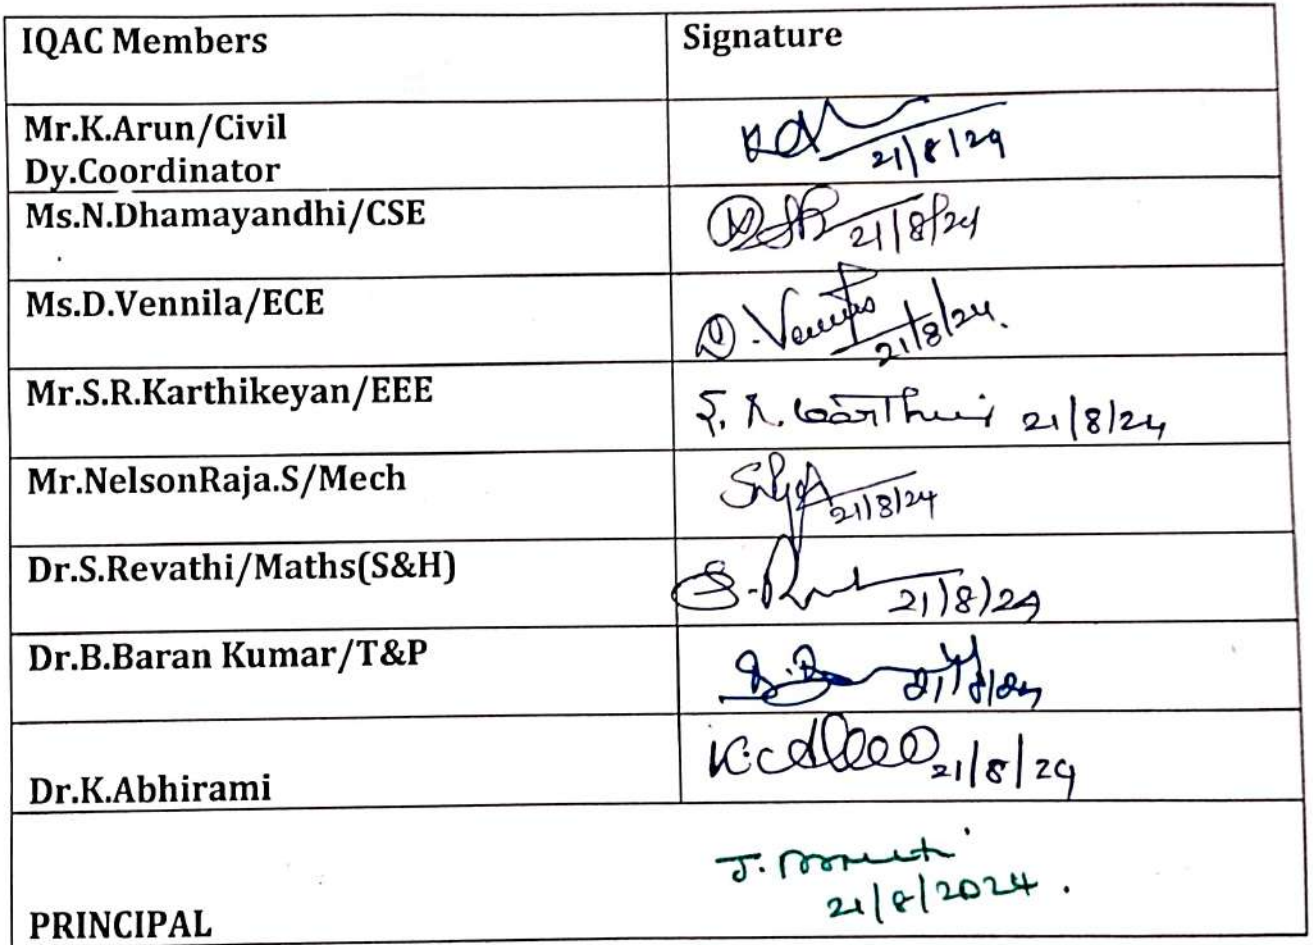 IQAC Members
Signature
Mr.K.Arun/Civil
Dy.Coordinator
21/8/24
Ms.N.Dhamayandhi/CSE
21/8/24
Ms.D.Vennila/ECE
21/8/24.
Mr.S.R.Karthikeyan/EEE
21/8/24
Mr.NelsonRaja.S/Mech
21/8/24
Dr.S.Revathi/Maths(S&H)
21/8/24
Dr.B.Baran Kumar/T&P
21/8/24
Dr.K.Abhirami
21/8/24
21/8/2024.
PRINCIPAL